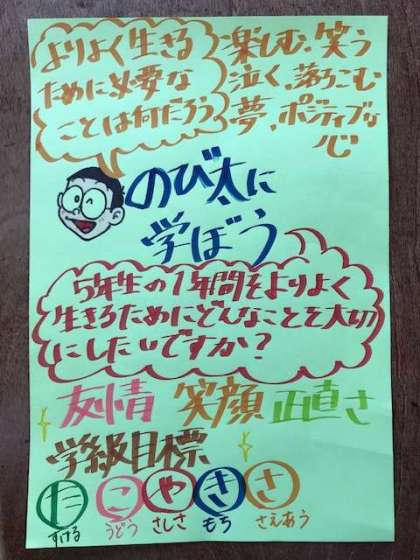 よりよく生きる
ために必要な
ことは何だろう
楽しむ、笑う
泣く、落ちこむ
夢、ポジティブな
心
のび太に
学ぼう
5年生の1年間をよりよく
生きるためにどんなことを大切
にしたいですか?
友情 笑顔 正直さ
学級目標
た こ や き さ
すける うどう さしさ もち さえあう